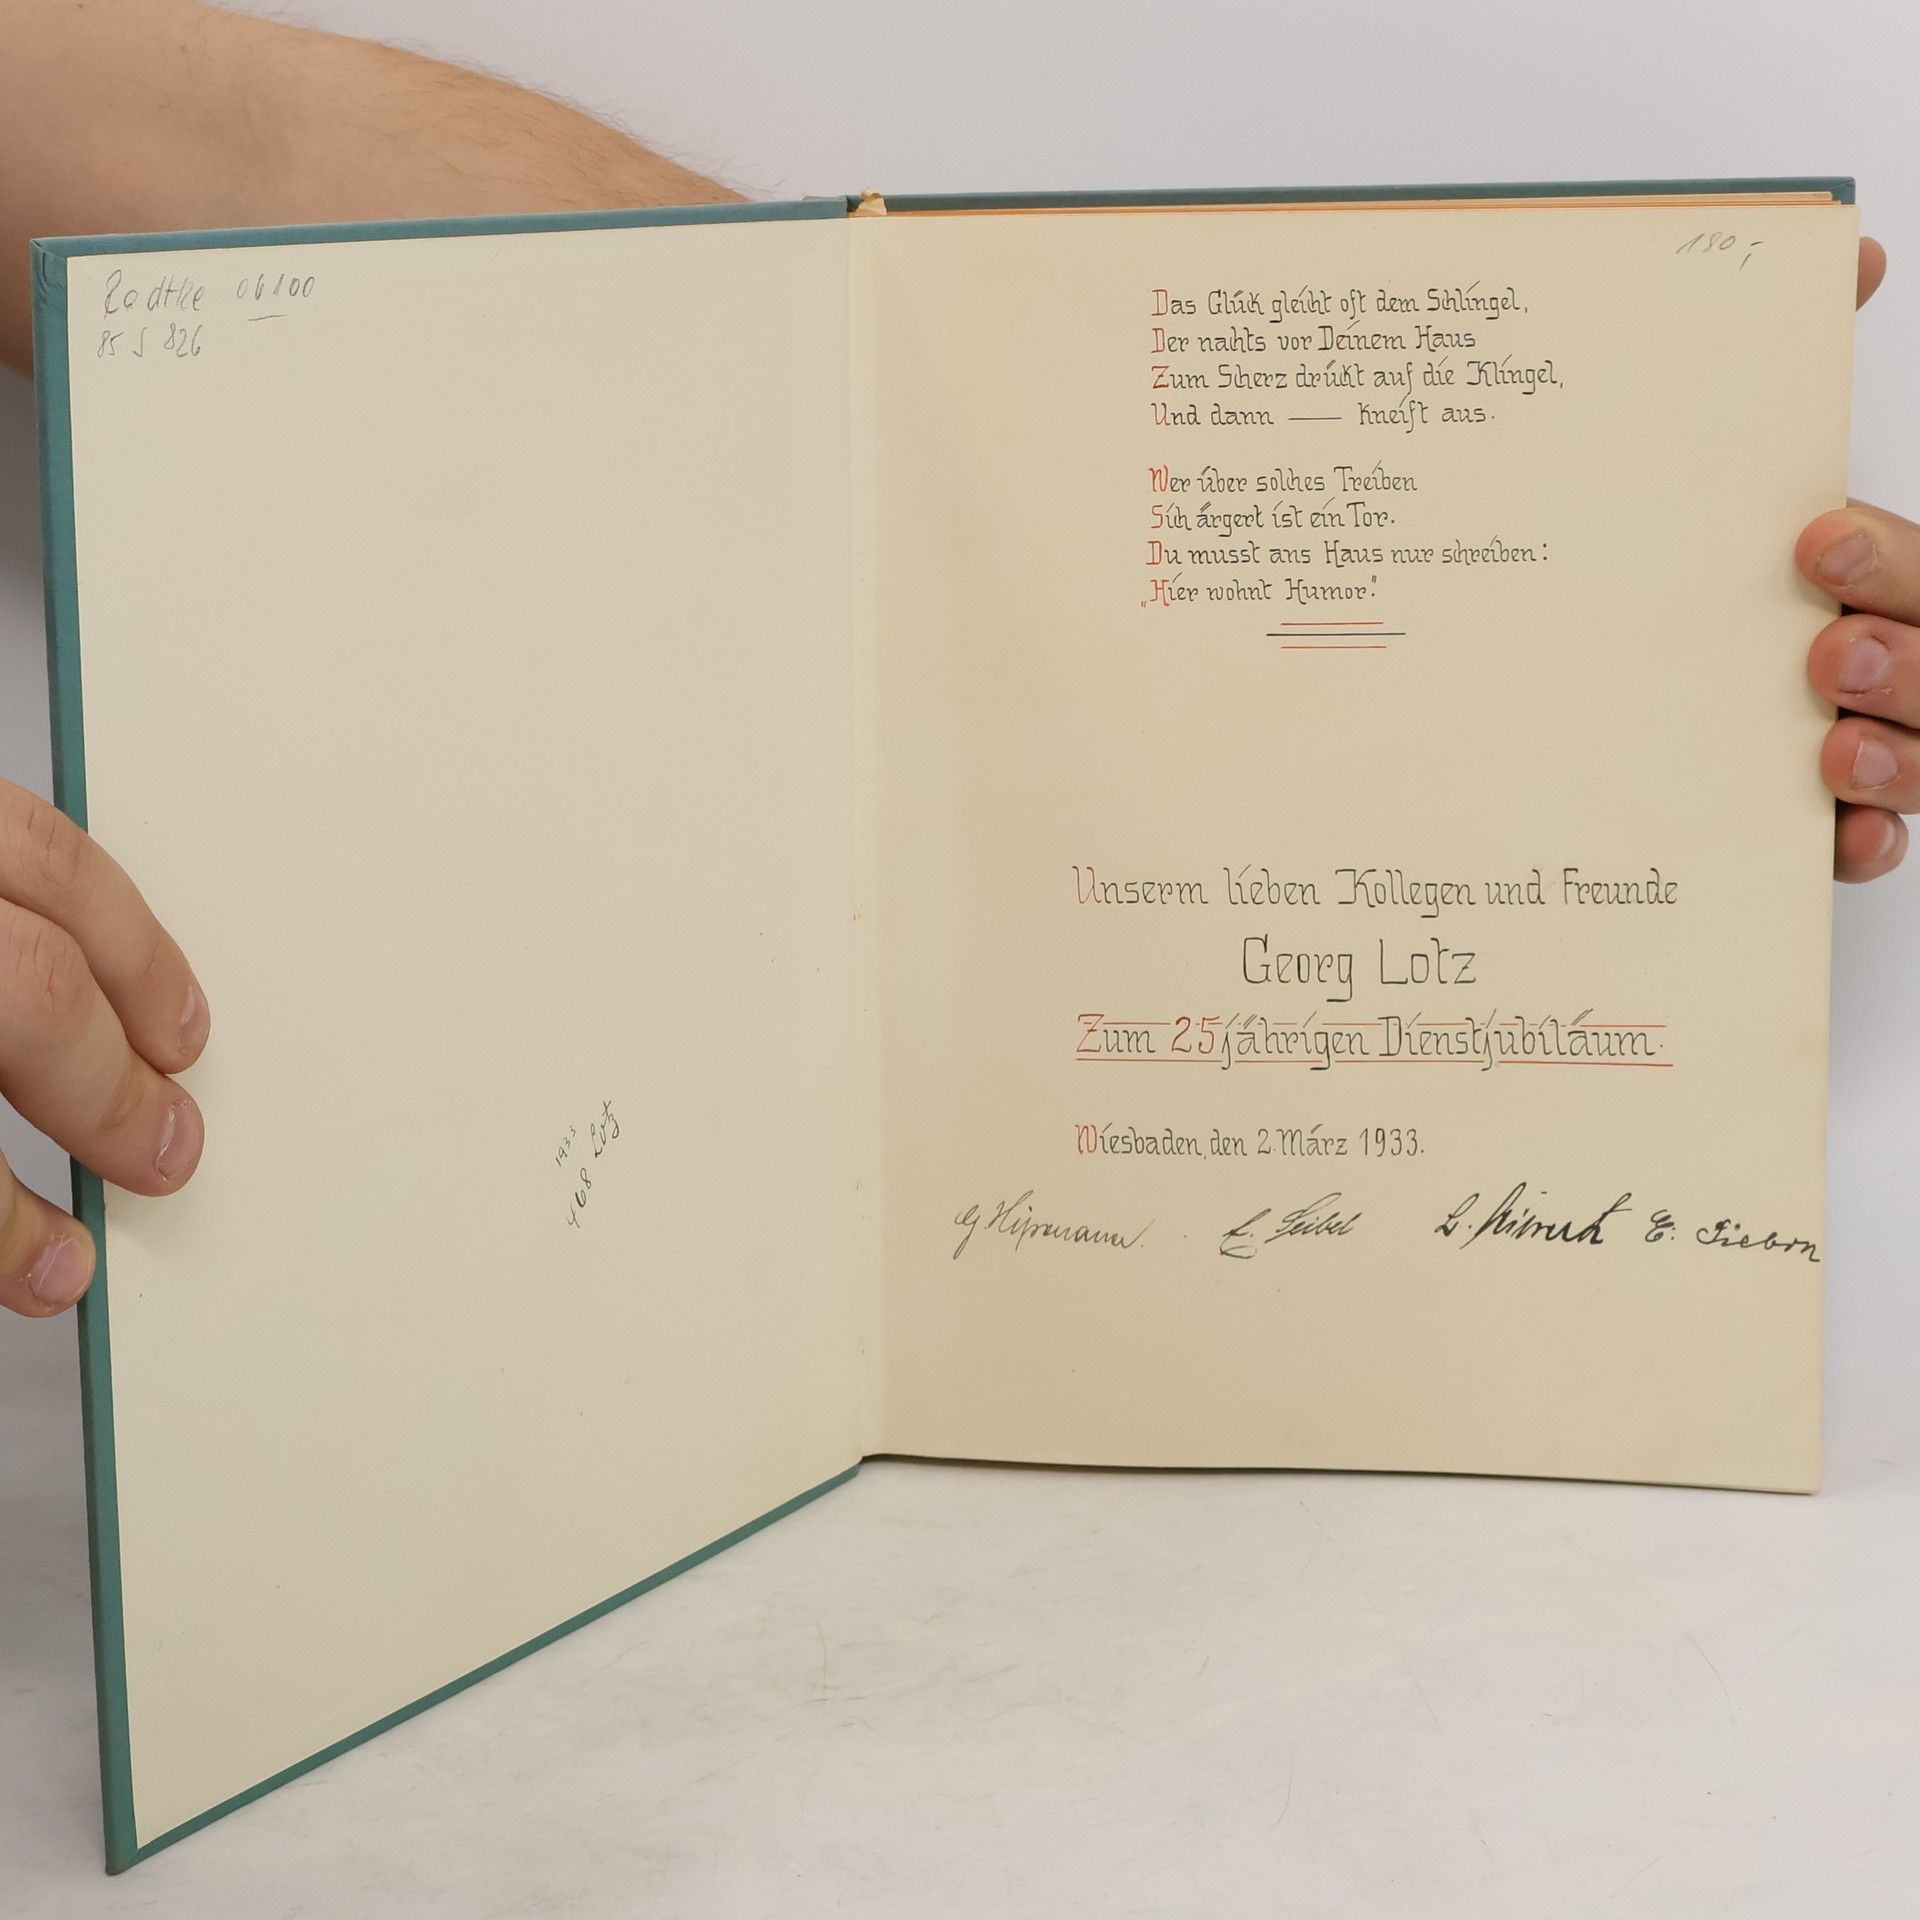 Radtke 06100
85 S 826
1933
468 Lotz
180,-
Das Glück gleicht oft dem Schlingel,
Der nachts vor Deinem Haus
Zum Scherz drückt auf die Klingel,
Und dann — kneift aus.
Wer über solches Treiben
Sich ärgert ist ein Tor.
Du musst ans Haus nur schreiben:
„Hier wohnt Humor."
Unserm lieben Kollegen und Freunde
Georg Lotz
Zum 25jährigen Dienstjubiläum.
Wiesbaden, den 2. März 1933.
E. Seibel L. E. Siebon